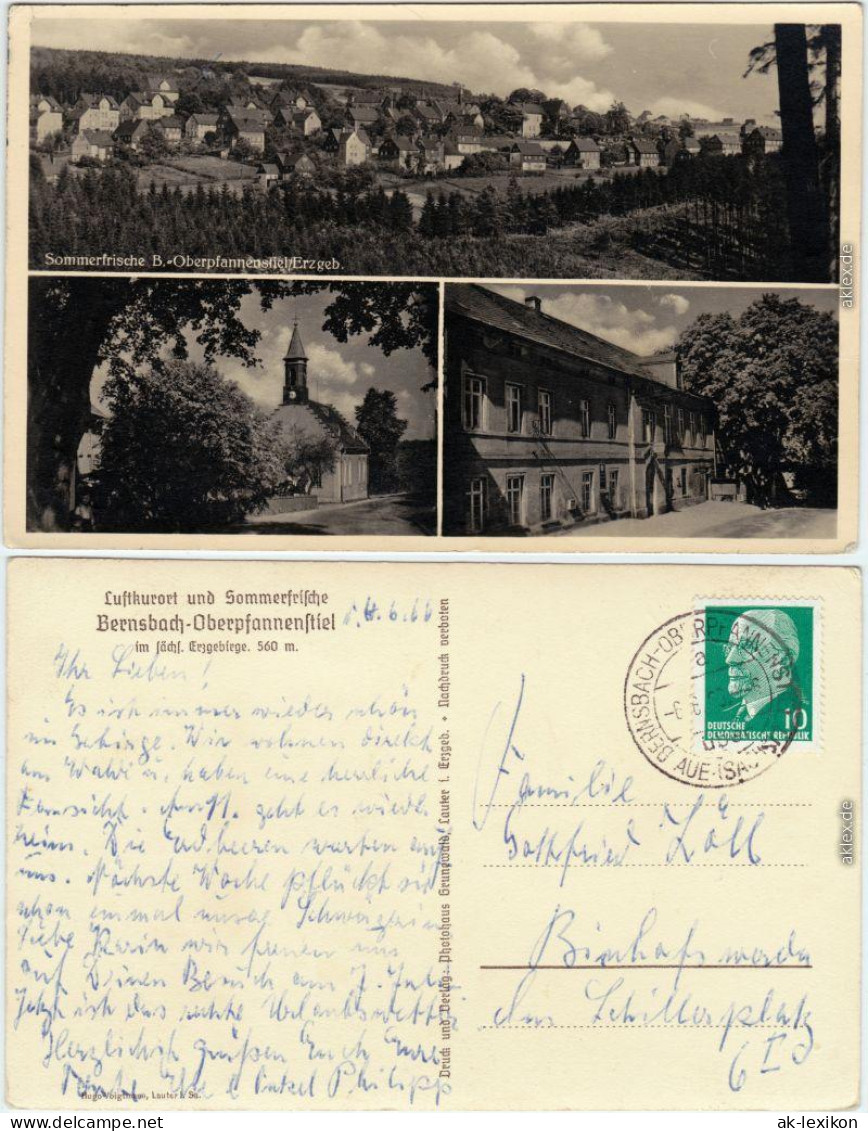 Sommerfrische B.-Oberpfannenstiel/Erzgeb.
Luftkurort und Sommerfrische
Bernsbach-Oberpfannenstiel
im sächs. Erzgebirge. 560 m.
Ihr Lieben!
Es ist immer wieder schön
im Gebirge. Wir wohnen direkt
am Wald u. haben eine herrliche
Fernsicht. geht es wieder
heim. Die Erdbeeren warten auf
uns. Nächste Woche pflückt
schon einmal unsre
liebe Karin wir freuen uns
auf Deinen Besuch am 7. Juli.
Jetzt ist das rechte Urlaubswetter
Herzlichst grüßen Euch Eure
Tante & Onkel Philipp
Hugo Voigtmann, Lauter i. Sa.
Druck und Verlag: Photohaus Grunewald, Lauter i. Erzgeb. * Nachdruck verboten
BERNSBACH-OBERPFANNENST
AUE (SACHS)
DEUTSCHE
DEMOKRATISCHE REPUBLIK
10
Familie
Gottfried
Bischofswerda
Am Schillerplatz
aklex.de
aklex.de
ak-lexikon